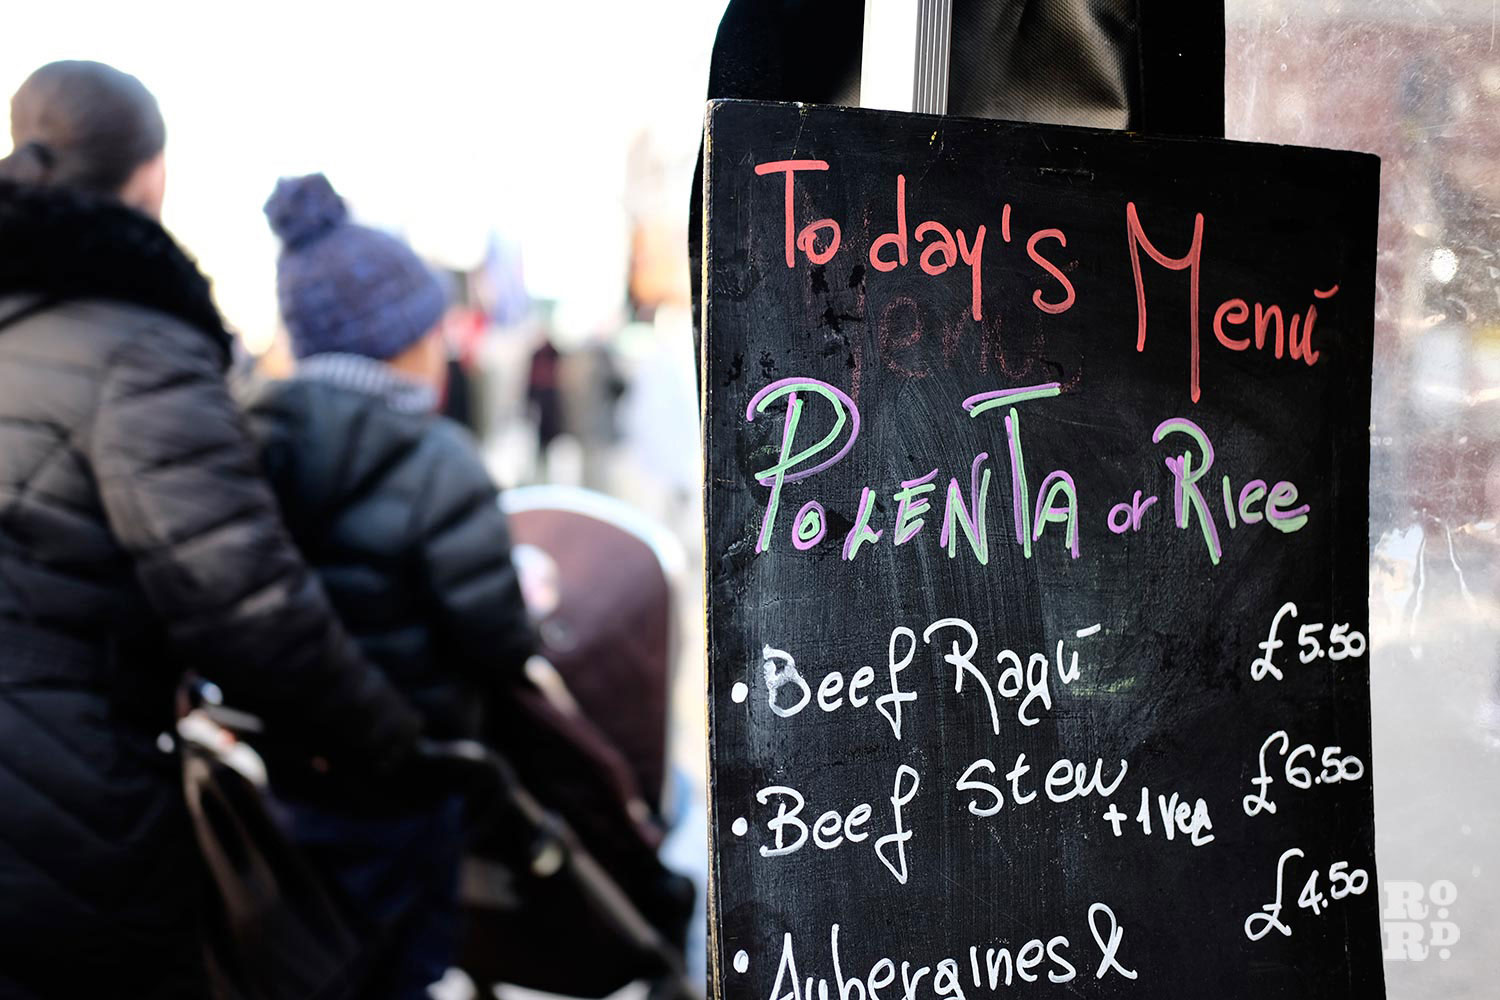 Today's Menū
POLENTA or RIce
• Beef Ragū £5.50
• Beef Stew £6.50
+1 Veg
• Aubergines & £4.50
RO
RD.